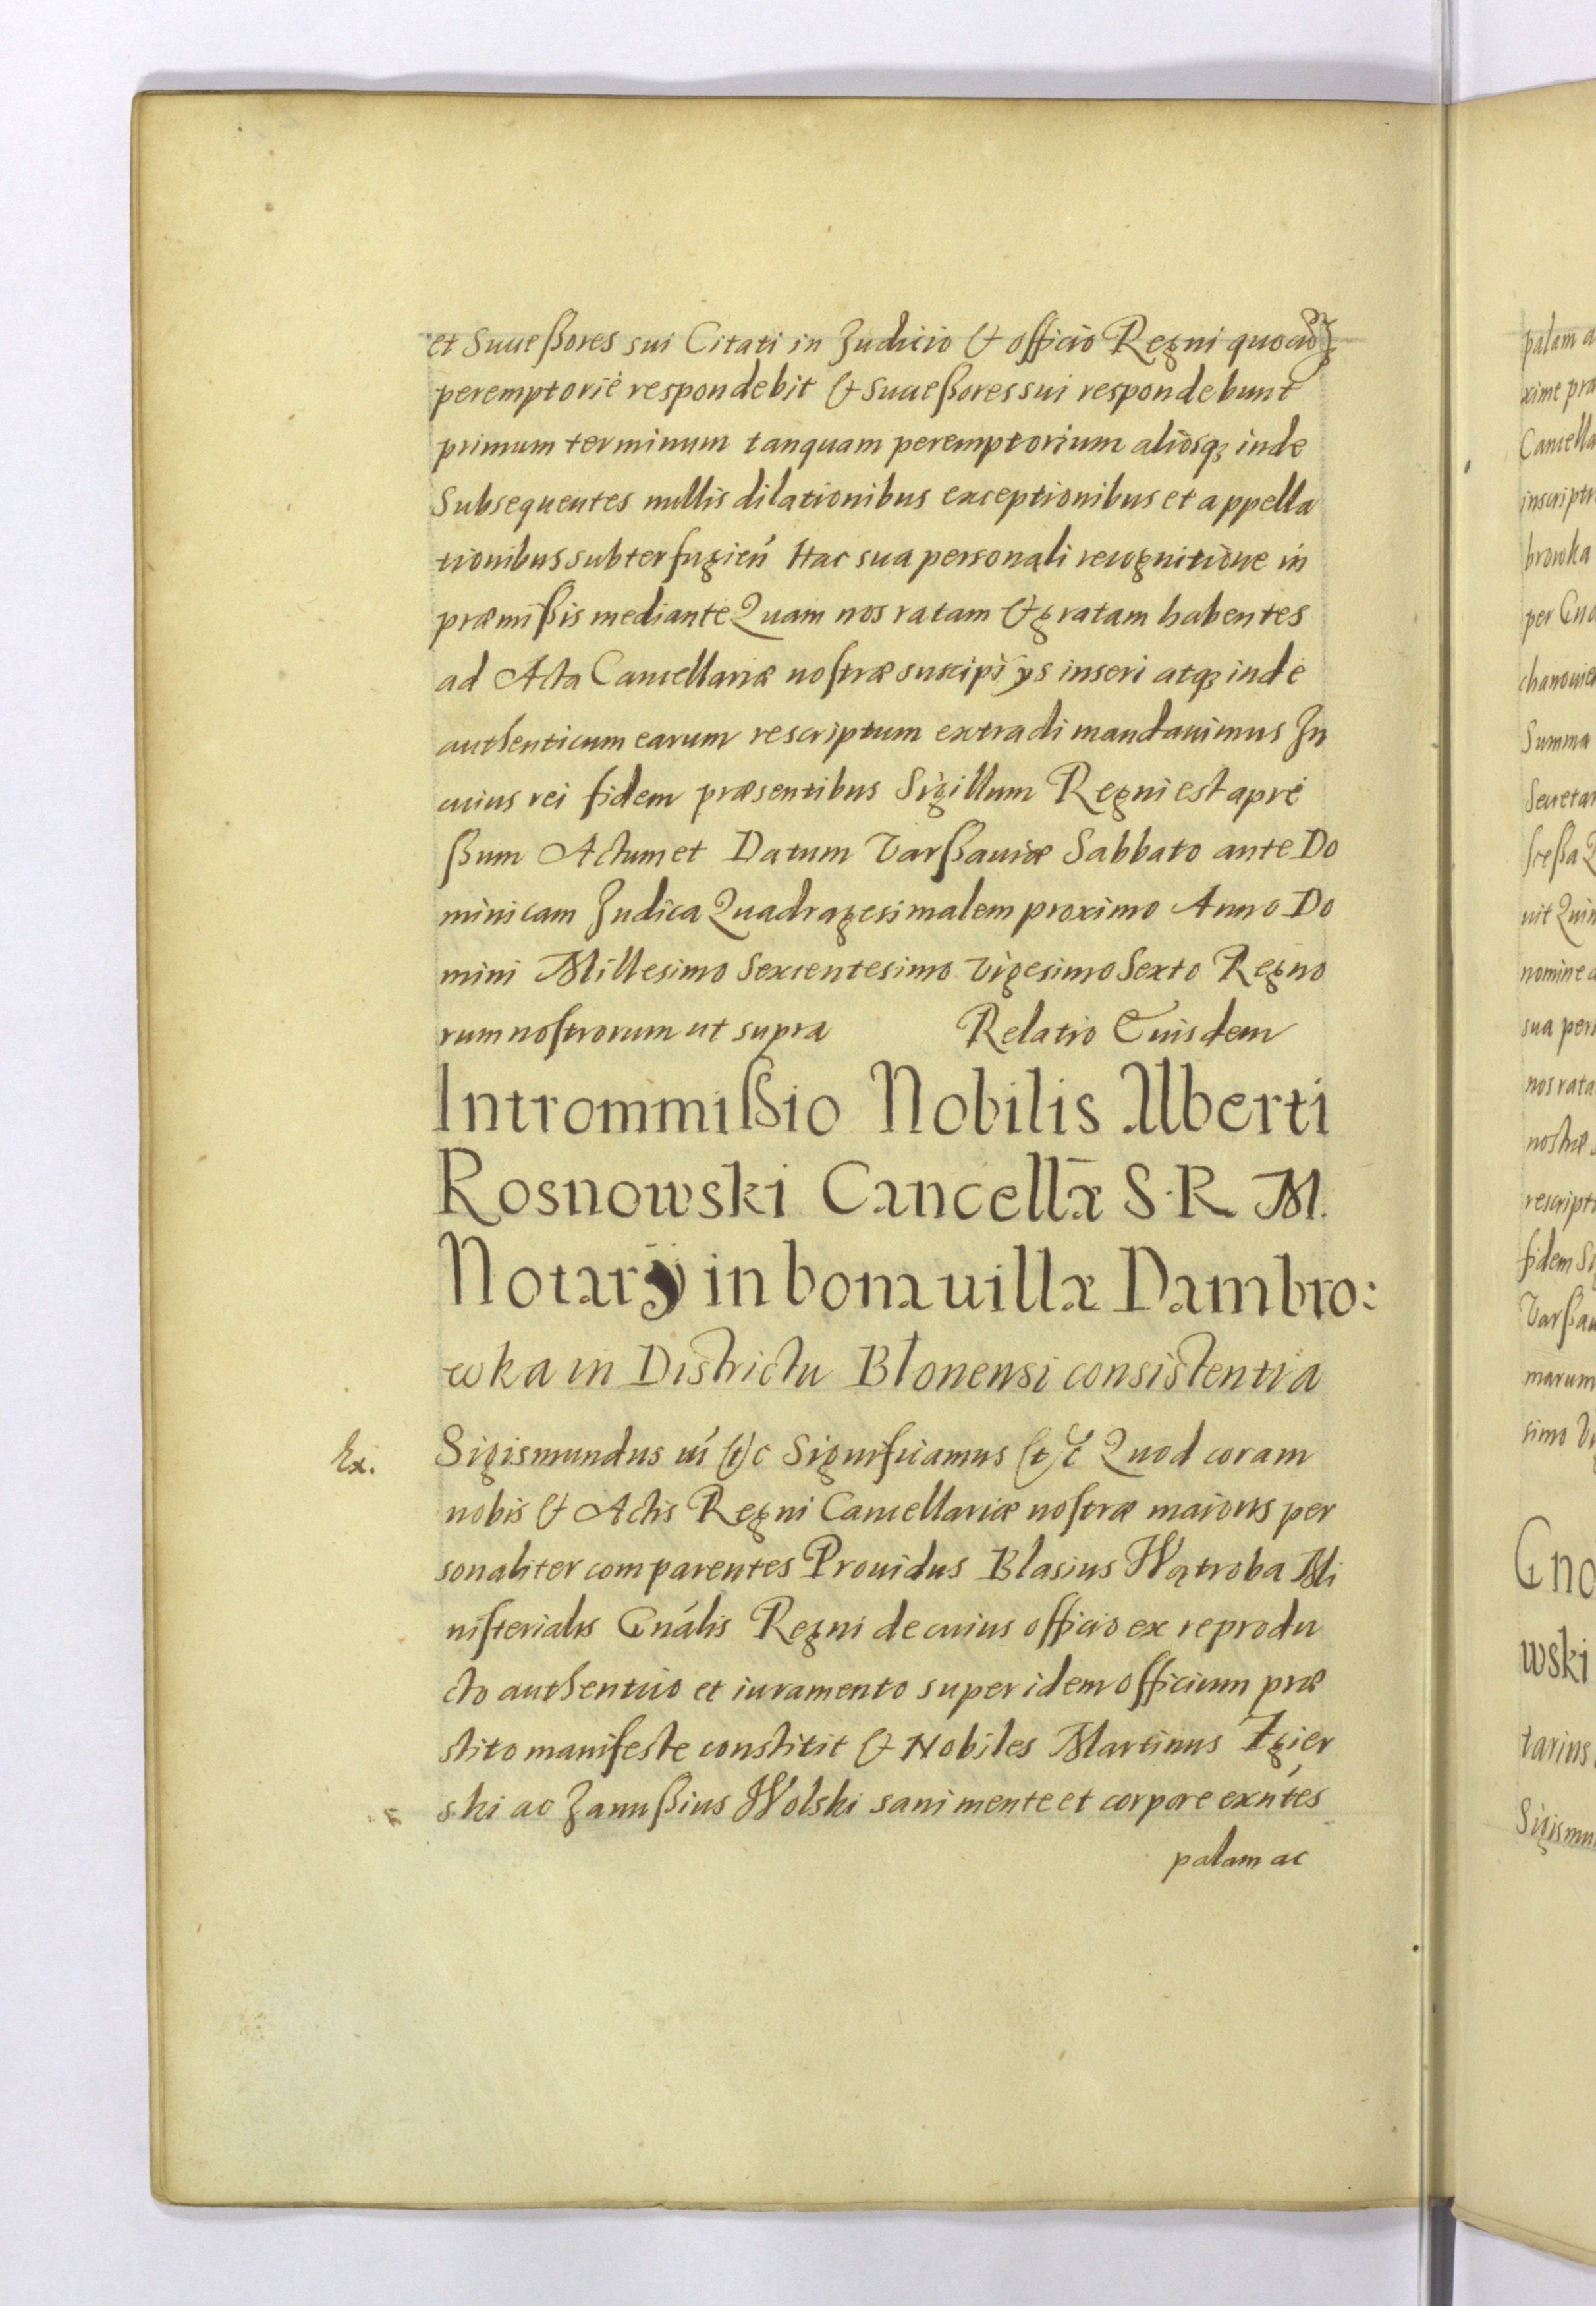 et Successores sui Citati in Judicio & officio Regni quocumq3
peremptorie respondebit & Successores sui respondebunt
primum terminum tanquam peremptorium aliosq3 inde
Subsequentes nullis dilationibus exceptionibus et appella
tionibus subterfugien Hac sua personali recognitione in
præmißis mediante Quam nos ratam & gratam habentes
ad Acta Cancellariæ nostræ suscipi ys inseri atq3 inde
authenticum earum rescriptum extradi mandauimus In
cuius rei fidem præsentibus Sigillum Regni est apre
ßum Actum et Datum Varßauiæ Sabbato ante Do
minicam Judica Quadragesimalem proximo Anno Do
mini Millesimo Sexcentesimo Vigesimo Sexto Regno
rum nostrorum ut supra Relatio Eiusdem
Intrommißio Nobilis Alberti
Rosnowski Cancellæ S. R. M.
Notarÿ in bona uillæ Dambro:
wka in Districtu Blonensi consistentia
Ex. Sigismundus ui &c Significamus &c Quod coram
nobis & Actis Regni Cancellariæ nostræ maioris per
sonaliter comparentes Prouidus Blasius Wątroba Mi
nisterialis Gnális Regni de cuius officio ex reprodu
cto authentico et iuramento super idem officium præ
stito manifeste constitit & Nobiles Martinus Zgier
ski ac Janußius Wolski sani mente et corpore exńtes
palam ac